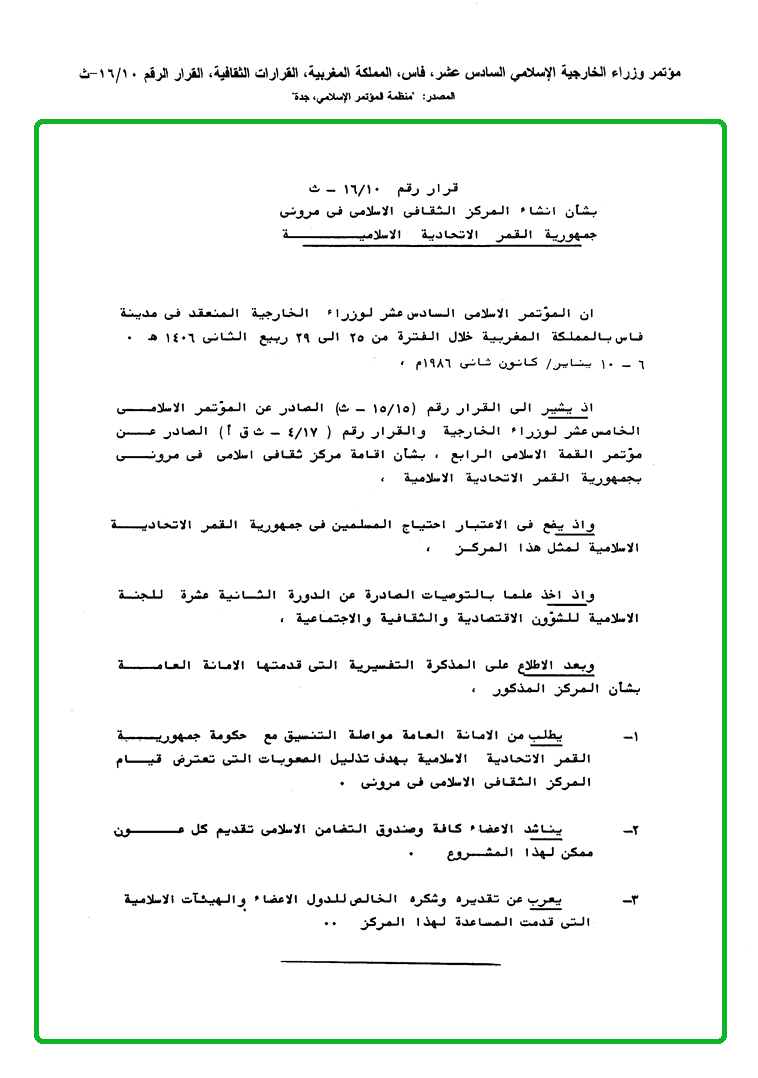 مؤتمر وزراء الخارجية الإسلامي السادس عشر، فاس، المملكة المغربية، القرارات الثقافية، القرار الرقم ١٦/١٠-ث
المصدر: "منظمة المؤتمر الإسلامي، جدة"
قرار رقم ١٦/١٠ – ث
بشأن انشاء المركز الثقافى الاسلامى فى مرونى
جمهورية القمر الاتحادية الاسلامية
ان المؤتمر الاسلامى السادس عشر لوزراء الخارجية المنعقد فى مدينة
فاس بالمملكة المغربية خلال الفترة من ٢٥ الى ٢٩ ربيع الثانى ١٤٠٦ هـ ٠
٦ – ١٠ يناير/ كانون ثانى ١٩٨٦م ،
اذ يشير الى القرار رقم (١٥/١٥ – ث) الصادر عن المؤتمر الاسلامى
الخامس عشر لوزراء الخارجية والقرار رقم ( ٤/١٧ – ث ق أ) الصادر عن
مؤتمر القمة الاسلامى الرابع ، بشأن اقامة مركز ثقافى اسلامى فى مرونى
بجمهورية القمر الاتحادية الاسلامية ،
واذ يفع فى الاعتبار احتياج المسلمين فى جمهورية القمر الاتحادية
الاسلامية لمثل هذا المركز ،
واذ اخذ علما بالتوصيات الصادرة عن الدورة الثانية عشرة للجنة
الاسلامية للشؤون الاقتصادية والثقافية والاجتماعية ،
وبعد الاطلاع على المذكرة التفسيرية التى قدمتها الامانة العامة
بشأن المركز المذكور ،
١– يطلب من الامانة العامة مواصلة التنسيق مع حكومة جمهورية
القمر الاتحادية الاسلامية بهدف تذليل الصعوبات التى تعترض قيام
المركز الثقافى الاسلامى فى مرونى ٠
٢– يناشد الاعضاء كافة وصندوق التضامن الاسلامى تقديم كل عون
ممكن لهذا المشروع ٠
٣– يعرب عن تقديره وشكره الخالص للدول الاعضاء والهيئآت الاسلامية
التى قدمت المساعدة لهذا المركز ٠٠